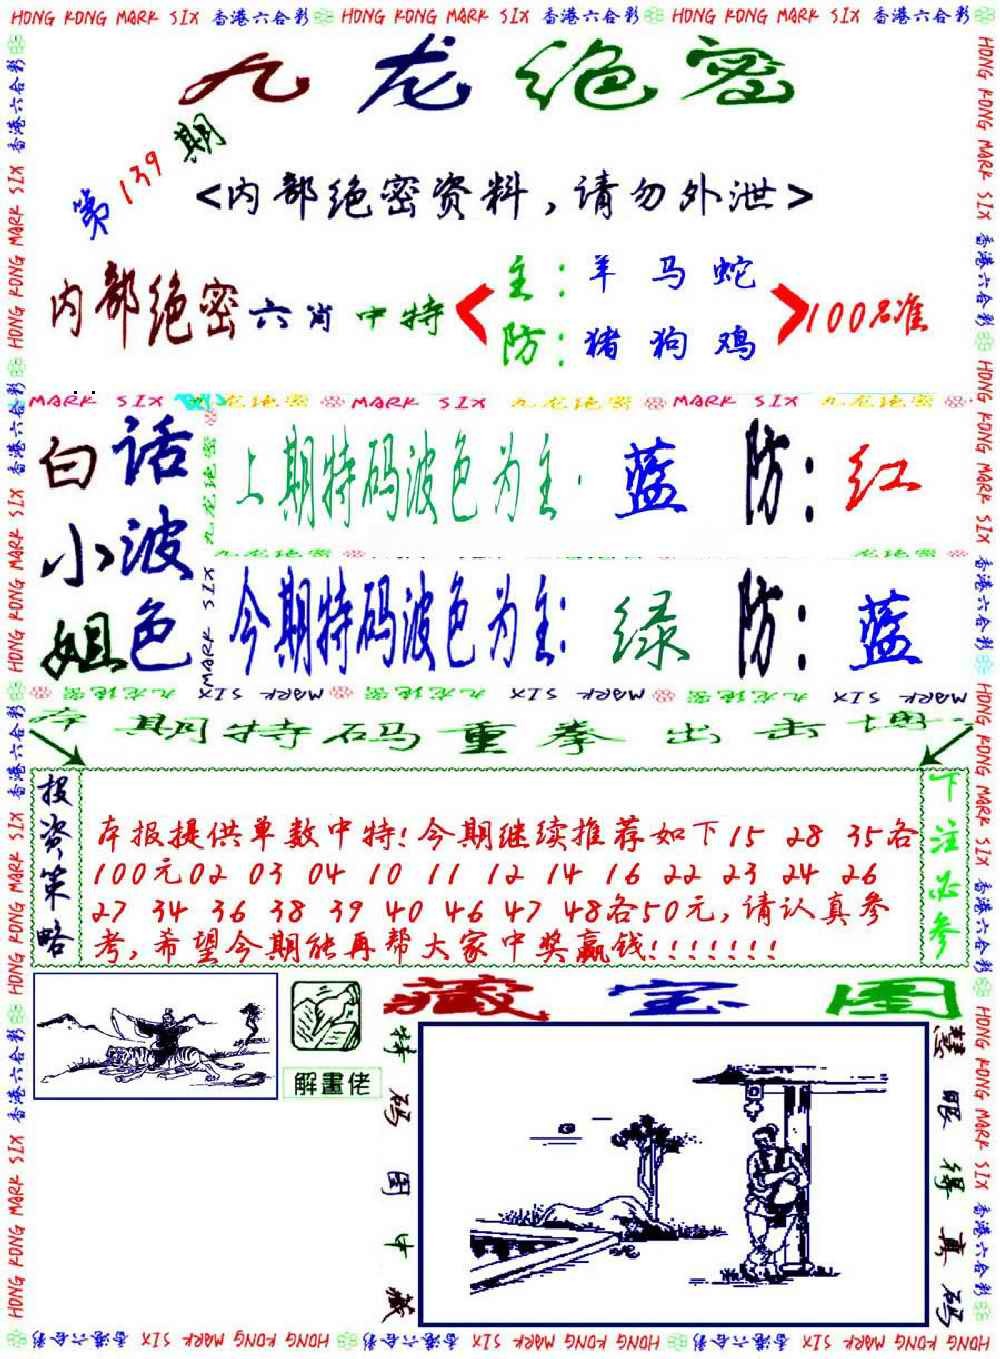 HONG KONG MARK SIX 香港六合彩 HONG KONG MARK SIX 香港六合彩 HONG KONG MARK SIX 香港六合彩
九龙绝密
第139期
<内部绝密资料，请勿外泄>
内部绝密六肖中特
主：羊 马 蛇
防：猪 狗 鸡
100%准
MARK SIX 九龙绝密 MARK SIX 九龙绝密 MARK SIX 九龙绝密
白小姐
话波色
上期特码波色为主：蓝 防：红
今期特码波色为主：绿 防：蓝
本期特码重拳出击
投资策略
本报提供单数中特！今期继续推荐如下15 28 35各
100元02 03 04 10 11 12 14 16 22 23 24 26
27 34 36 38 39 40 46 47 48各50元，请认真参
考，希望今期能再帮大家中奖赢钱！！！！！！！
下注必参
解畫佬
藏宝图
特码图中藏
慧眼得真码
HONG KONG MARK SIX 香港六合彩 HONG KONG MARK SIX 香港六合彩 HONG KONG MARK SIX 香港六合彩